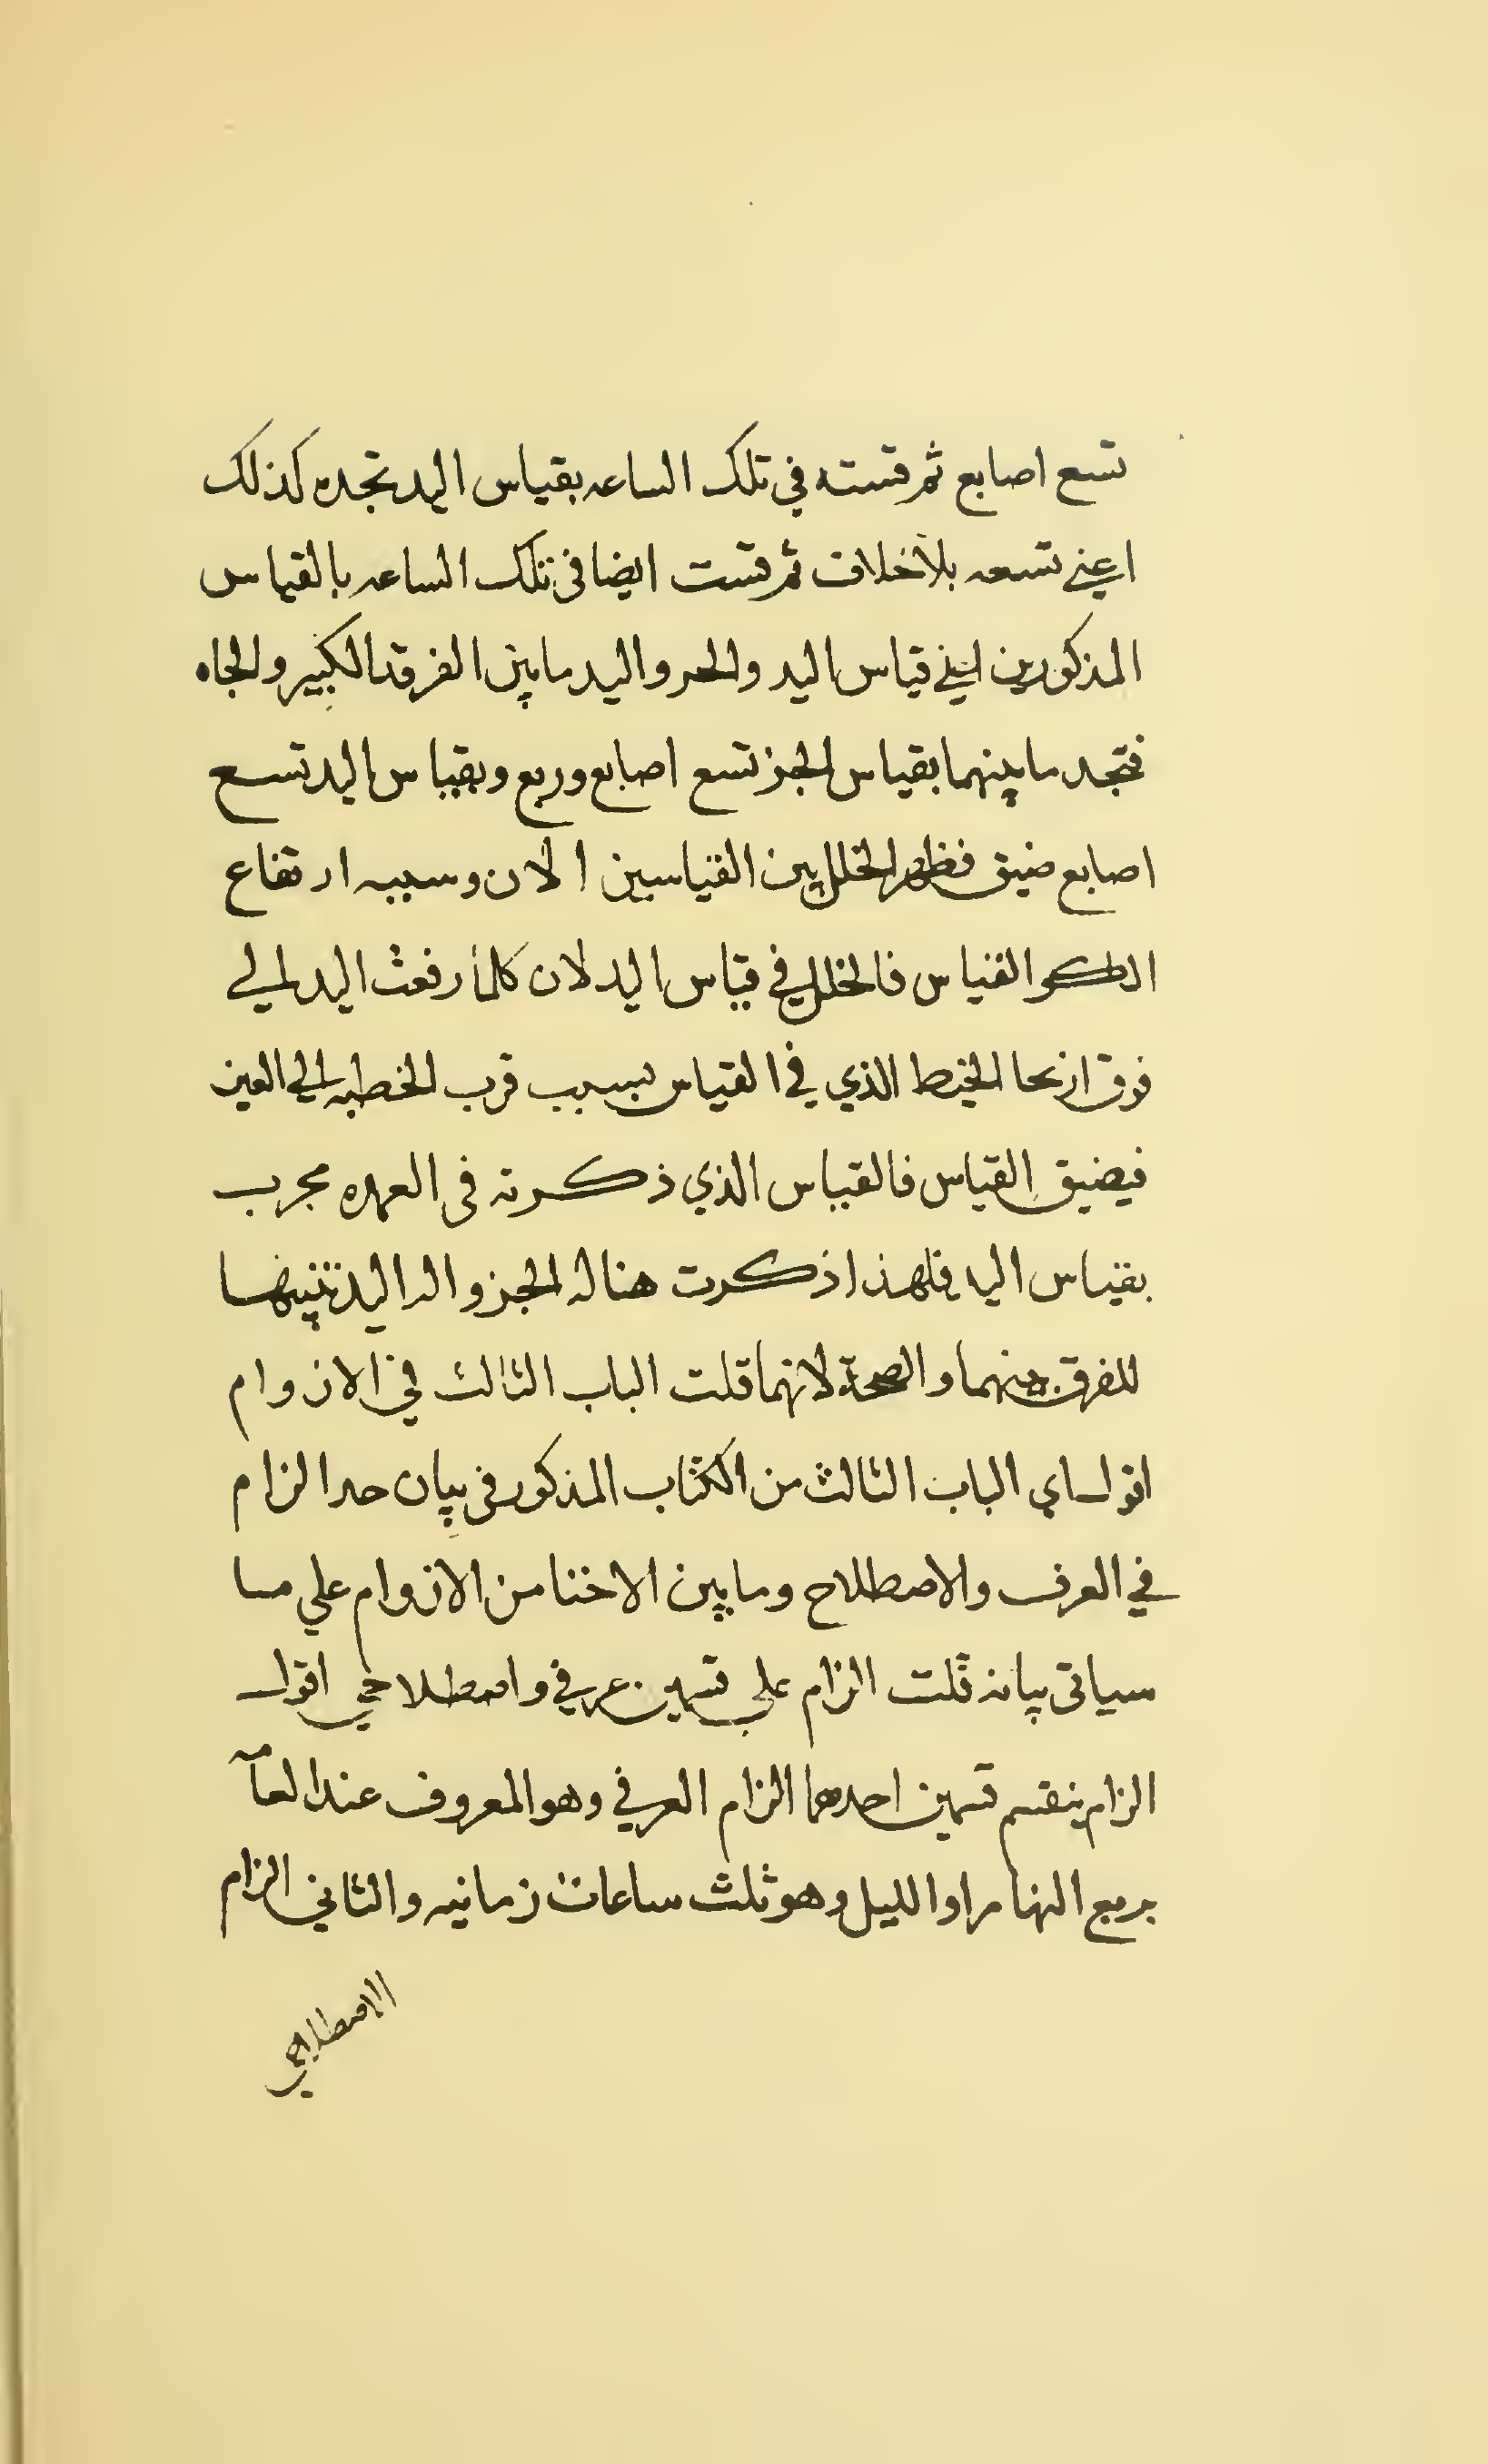 تسع اصابع ثم قسته في تلك الساعه بقياس اليد تجده كذلك
اعني تسعه بلا خلاف ثم قست ايضا في تلك الساعه بالقياس
المذكورين اعني قياس اليد والجر واليد ما بين الفرقد الكبير والجاه
فتجد ما بينهما بقياس الجز تسع اصابع وربع وبقياس اليد تسع
اصابع ضيق فظهر الخلل بين القياسين الان وسببه ارتفاع
القياس فالخلل في قياس اليد لان كلما رفعت اليد الي
فوق ارتخا الخيط الذي في القياس بسبب قرب الخطبه الي العين
فيضيق القياس فالقياس الذي ذكرته في العمده مجرب
بقياس اليد فلهذا ذكرت هنا له الجز واله اليد تنبيها
للفرق بينهما والصحة لانهما قلت الباب الثالث في الازوام
اقول اي الباب الثالث من الكتاب المذكور في بيان حد الزام
في العرف والاصطلاح وما بين الاخنا من الازوام علي ما
سياتي بيانه قلت الزام علي قسمين عرفي واصطلاحي اقول
الزام ينقسم قسمين احدهما الزام العرفي وهو المعروف عند العامه
بربع النهار او الليل وهو ثلث ساعات زمانيه والثاني الزام
الاصطلاحي